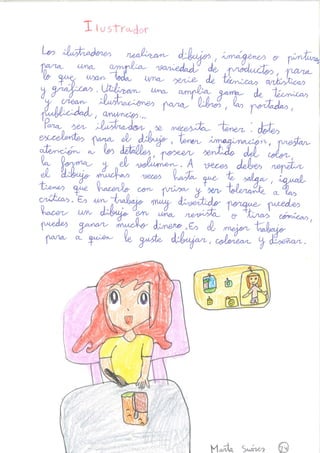 Ilustrador
Los ilustradores realizan dibujos, imágenes o pinturas
para una amplia variedad de productos, para
lo que usan toda una serie de técnicas artísticas
y gráficas. Utilizan una amplia gama de técnicas
y crean ilustraciones para libros, las portadas,
publicidad, anuncios...
Para ser ilustrador se necesita tener: dotes
excelentes para el dibujo, tener imaginación, prestar
atención a los detalles, poseer sentido del color,
la forma y el volumen. A veces debes repetir
el dibujo muchas veces hasta que te salga, igual
tienes que hacerlo con prisa y ser tolerante a las
críticas. Es un trabajo muy divertido porque puedes
hacer un dibujo en una revista o tiras cómicas,
puedes ganar mucho dinero. Es el mejor trabajo
para a quien le guste dibujar, colorear y diseñar.
Marta Suárez 24